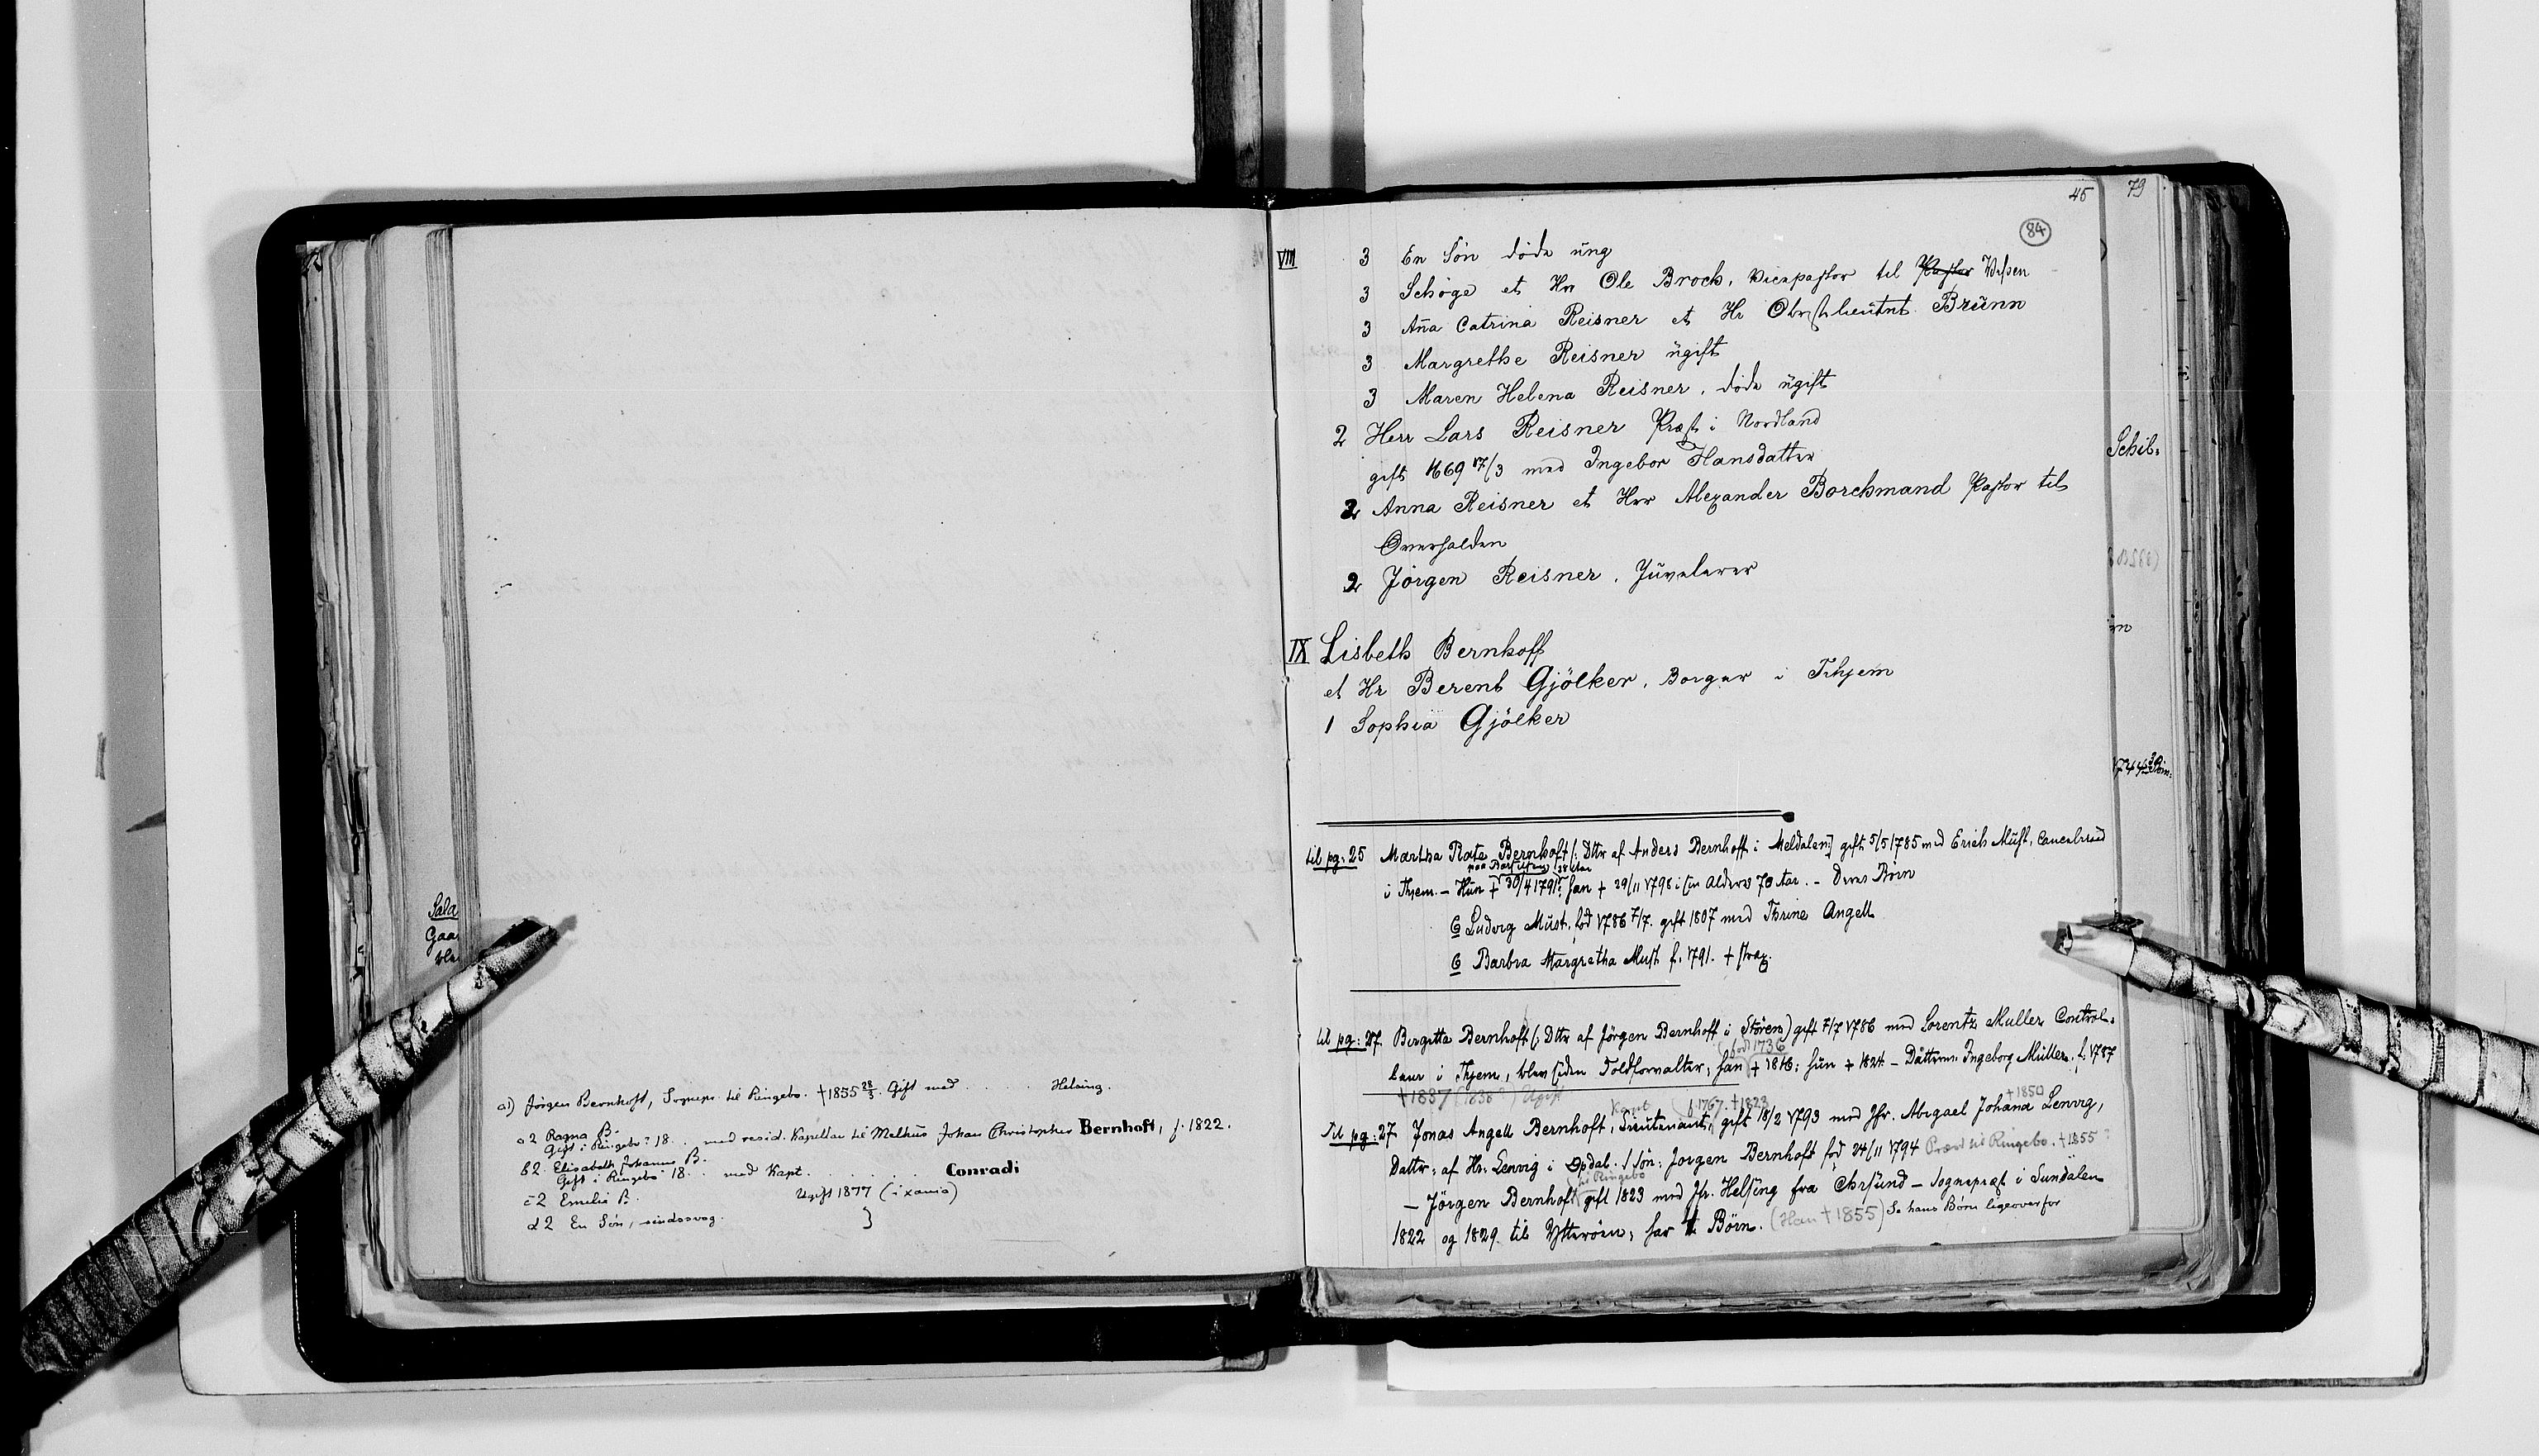 a1) Jørgen Bernhoft, Sognepr. til Ringebo. †1855 28/3. Gift med . . . . Helsing.
a2 Ragna B.
Gift i Ringebo? 18 . . med resid. Kapellan til Melhus Johan Christopher Bernhoft, f. 1822.
b2. Elisabeth Johanne B.
Gift i Ringebo 18 . . med Kapt. . . . . . Conradi
c2 Emelie B. Ugift 1877 (i Xania)
d2 En Søn, sindssvag.
Sala
Gaa
ble
45
79
84
VIII 3 En Søn døde ung
3 Schøge et Hr Ole Brock, Vicepastor til Pastor Vefsen
3 Aña Catrina Reisner et Hr Obristlieutnt Brünn
3 Margrethe Reisner ugift
3 Maren Helena Reisner, døde ugift
2 Herr Lars Reisner Præst i Nordland
gift 1669 17/3 med Ingebor Hansdatter
2 Anna Reisner et Herr Alexander Borchmand Pastor til
Overhalden
2 Jörgen Reisner, Juvelerer
IX Lisbeth Bernhoff
et Hr Berent Gjölker, Borger i Trhjem
1 Sophia Gjölker
til pg: 25 Martha Rate Bernhoft (: Dttr af Anders Bernhoft i Meldalen) gift 5/5 1785 med Erich Must, Cancelriraad
i Thjem. – Hun † 30/4 1791? han † 29/11 1798 i sin Alders 70 Aar. – Deres Börn
6 Ludvig Must, föd 1786 7/7. gift 1807 med Thrine Angell
6 Barbra Margretha Must f. 1791. † strax.
til pg: 27. Birgitta Bernhoft (: Dttr af Jörgen Bernhoft i Stören) gift 7/7 1786 med Lorentz Muller Control-
(född 1736
leur i Thjem, blev siden Toldforvalter, han † 1816: hun † 1824 – Datteren Ingeborg Müller. f. 1787
† 1887 (1838?) Ugift
Kapt (f. 1767. † 1823 † 1850
Til pg: 27 Jonas Angell Bernhoft, Lieutenant, gift 18/2 1793 med Jfr. Abigael Johana Lenvig,
Dattr: af Hr: Lenvig i Opdal. / Søn: Jörgen Bernhoft föd 24/11 1794 Præst til Ringebo. † 1855?
til Ringebo
– Jörgen Bernhoft gift 1823 med Jfr. Helsing fra Chrsund – Sognepræst i Sundalen
1822 og 1829 til Ytterøen; har 4 Börn. (Han † 1855) Se hans Børn ligeoverfor
Schil-